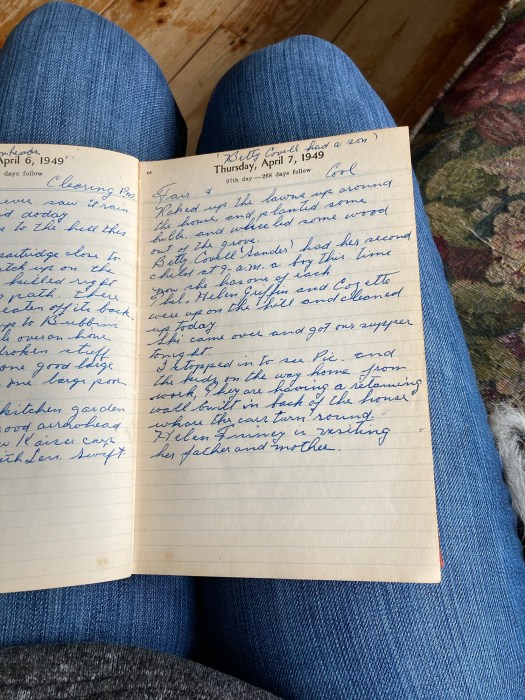 April 6, 1949
days follow
Clearing P.m.
ever saw rain
to the hill this
partridge close to
killed right
path. there
eaten off its back.
up to Bubbins
broken stuff
one good large
one large poor
kitchen garden
good arrowhead
Kaiser car
with Len. Swift
(Betty Covell had a son)
Thursday, April 7, 1949
97th day—268 days follow
Fair & Cool
Raked up the lawns up around
the house and planted some
bulbs and wheeled some wood
out of the grove.
Betty Covell (Sanders) had her second
child at 9-a.m. a boy this time
now she has one of each
Helen Griffin and Cozette
were up on the hill and cleaned
up today
Ski came over and got our supper
tonight
I stopped in to see Pic. and
the kids on the way home from
work, they are having a retaining
wall built in back of the house
whare the cars turn round.
Helen Finney is visiting
her father and mother.